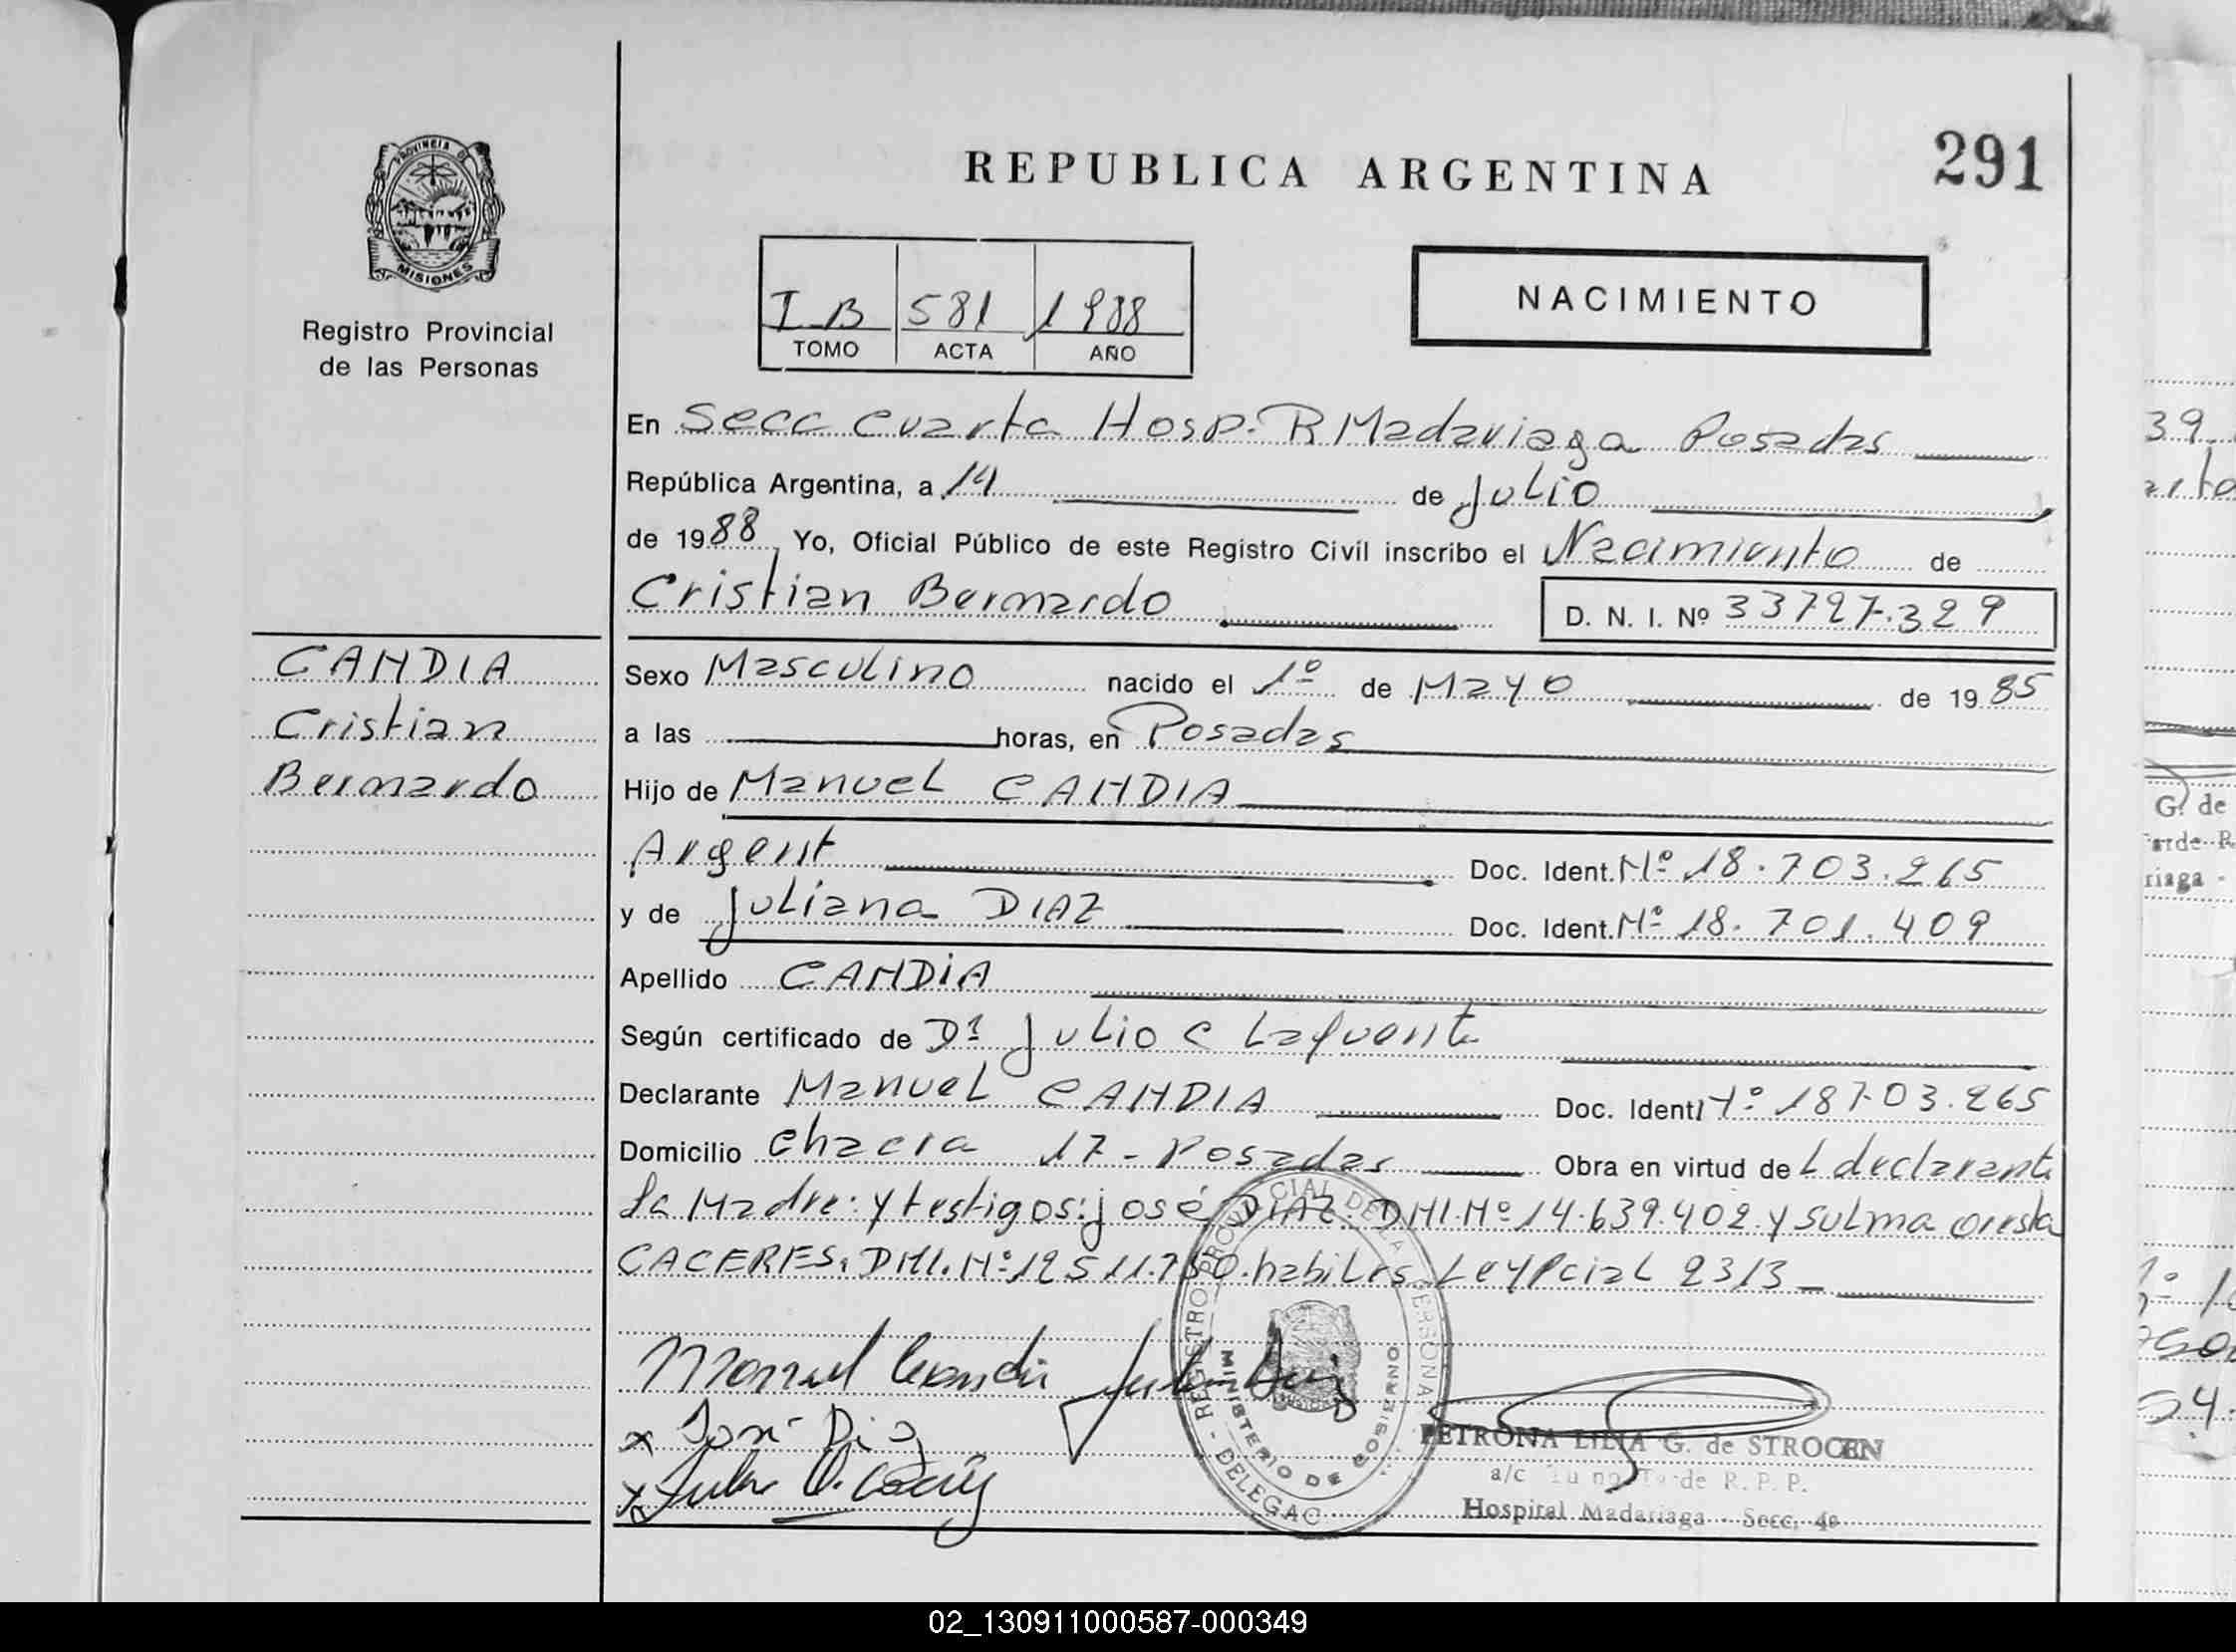 PROVINCIA DE
MISIONES
Registro Provincial
de las Personas
REPUBLICA ARGENTINA
291
I-B 581 1988
TOMO ACTA AÑO
NACIMIENTO
En Secc Cuarta Hosp. R Madariaga Posadas
República Argentina, a 14 de Julio
de 1988, Yo, Oficial Público de este Registro Civil inscribo el Nacimiento de
Cristian Bernardo
D. N. I. Nº 33727.329
CANDIA
Cristian
Bernardo
Sexo Masculino nacido el 1º de Mayo de 1985
a las horas, en Posadas
Hijo de Manuel CANDIA
Argent Doc. Ident. Nº 18.703.265
y de Juliana DIAZ Doc. Ident. Nº 18.701.409
Apellido CANDIA
Según certificado de Julio C Lafuente
Declarante Manuel CANDIA Doc. Ident Nº 18703.265
Domicilio Chacra 17 - Posadas Obra en virtud de L declarante
la Madre: y testigos: José DIAZ DNI.Nº 14.639.402 y Sulma
CACERES. DNI. Nº 12511.750. habiles Ley Pcial 2313
Manuel Candia
José Diaz
REGISTRO PROVINCIAL DE LA PERSONA
MINISTERIO DE GOBIERNO
DELEGAC
PETRONA LILIA G. de STROCEN
a/c de R. P. P.
Hospital Madariaga - Secc. 4º
39
G. de
riaga -
02_130911000587-000349